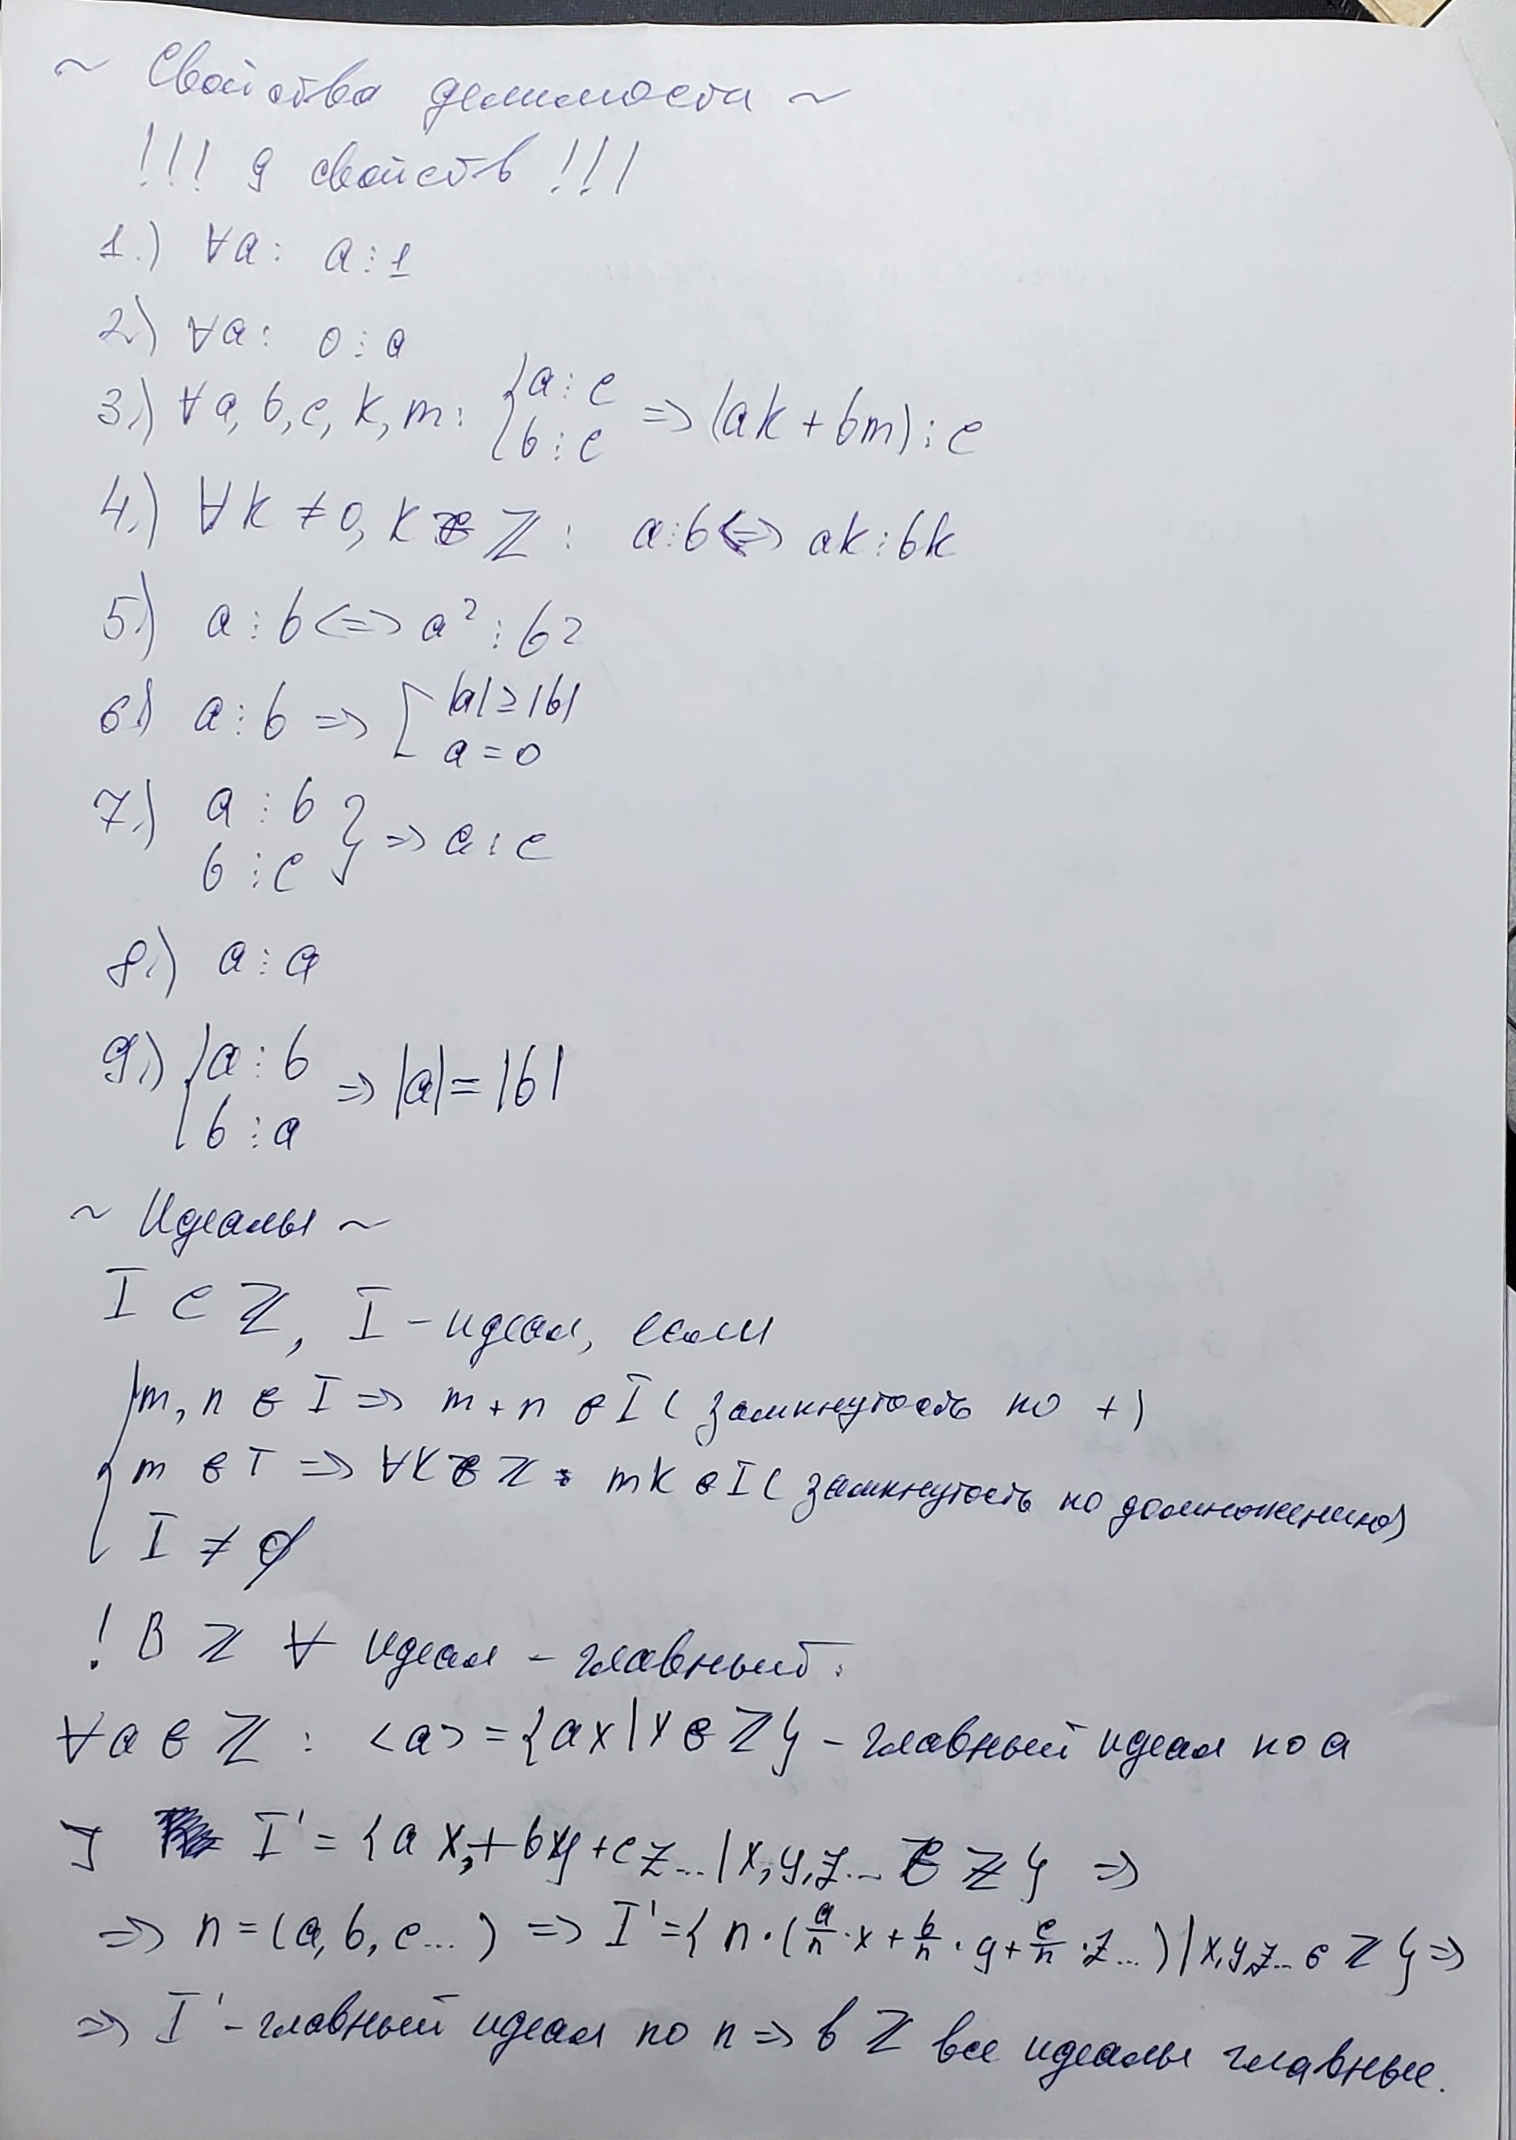 ~ Свойства делимости ~
!!! 9 свойств !!!
1.) ∀a: a⋮1
2.) ∀a: 0⋮a
3.) ∀a, b, c, k, m: { a⋮c b⋮c => (ak + bm)⋮c
4.) ∀k ≠ 0, k ∈ ℤ : a⋮b <=> ak⋮bk
5.) a⋮b <=> a²⋮b²
6.) a⋮b => [ |a| ≥ |b| a = 0
7.) a⋮b b⋮c } => a⋮c
8.) a⋮a
9.) { a⋮b b⋮a => |a| = |b|
~ Идеалы ~
I ⊂ ℤ, I - идеал, если
{ m, n ∈ I => m + n ∈ I ( замкнутость по + )
m ∈ I => ∀k ∈ ℤ : mk ∈ I ( замкнутость по домножению)
I ≠ ∅
! В ℤ ∀ идеал - главный:
∀a ∈ ℤ : <a> = {ax | x ∈ ℤ} - главный идеал по a
I' = {ax + by + cz... | x, y, z... ∈ ℤ} =>
=> n = (a, b, c...) => I' = { n·(a/n·x + b/n·y + c/n·z...) | x, y, z... ∈ ℤ} =>
=> I' - главный идеал по n => в ℤ все идеалы главные.